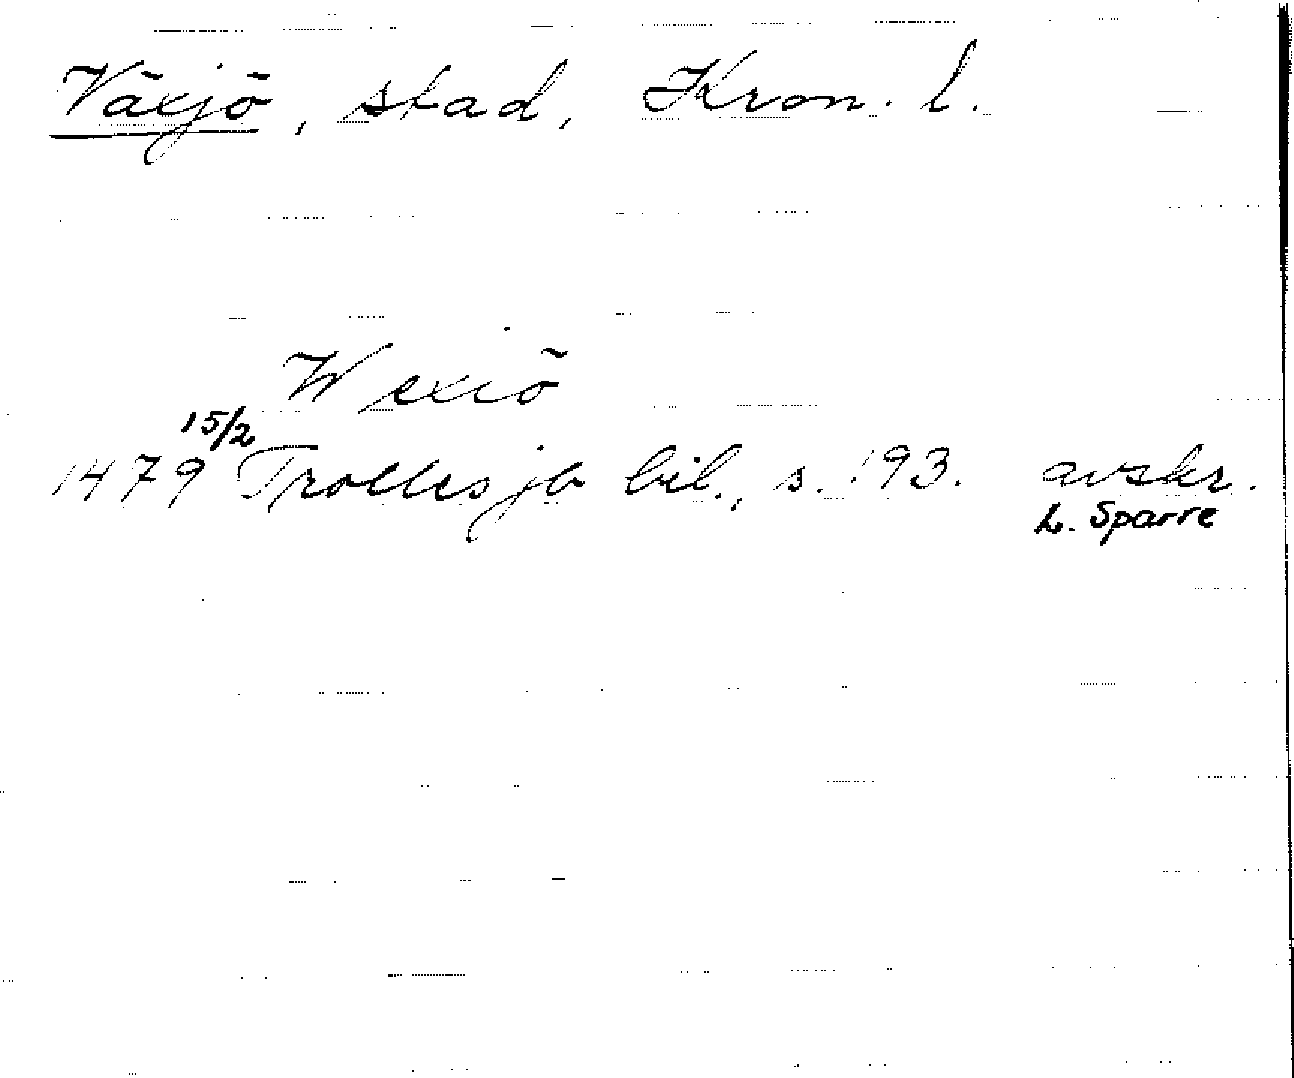 Växjö, stad, Kron. l.
Wexiö
15/2
1479 Trolles jb bil., s. 193. avskr.
L. Sparre